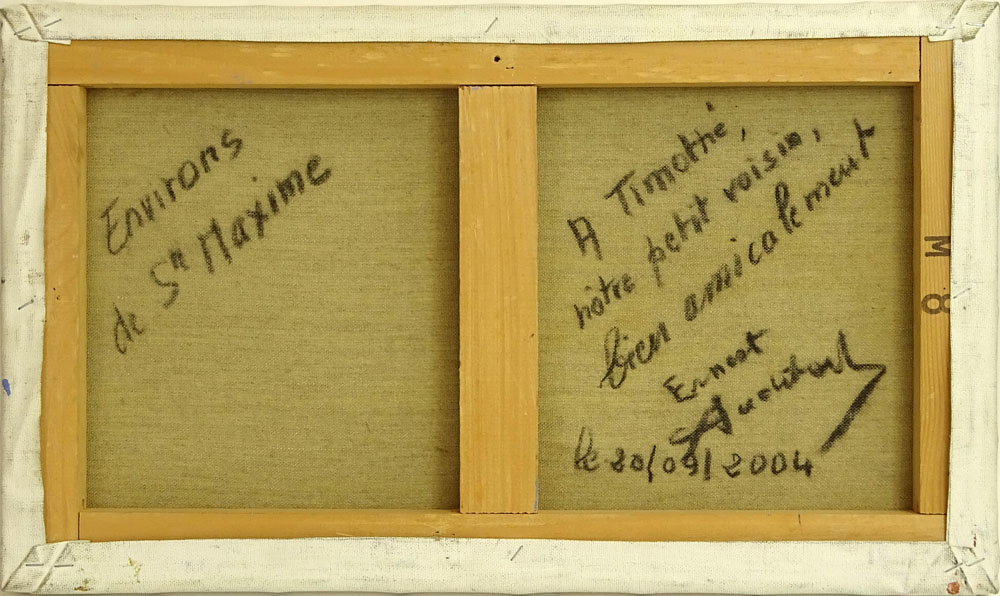 Environs
de Ste Maxime
A Timothé,
nôtre petit voisin,
bien amicalement
Ernest
Audibert
le 20/09/2004
M 8